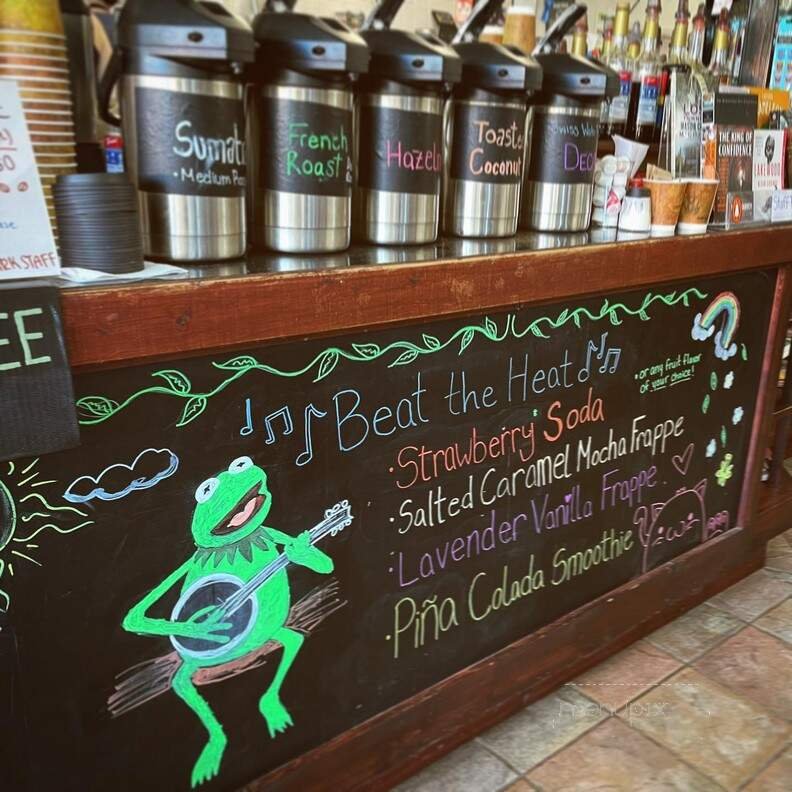 Sumat
• Medium Roa
French
Roast
Hazeln
Toaste
Coconut
Swiss Wat
Deca
THE KING OF
CONFIDENCE
Staff
RK STAFF
EE
Beat the Heat
• or any fruit flavor
of your choice!
• Strawberry Soda
• Salted Caramel Mocha Frappe
• Lavender Vanilla Frappe
• Piña Colada Smoothie
menupix